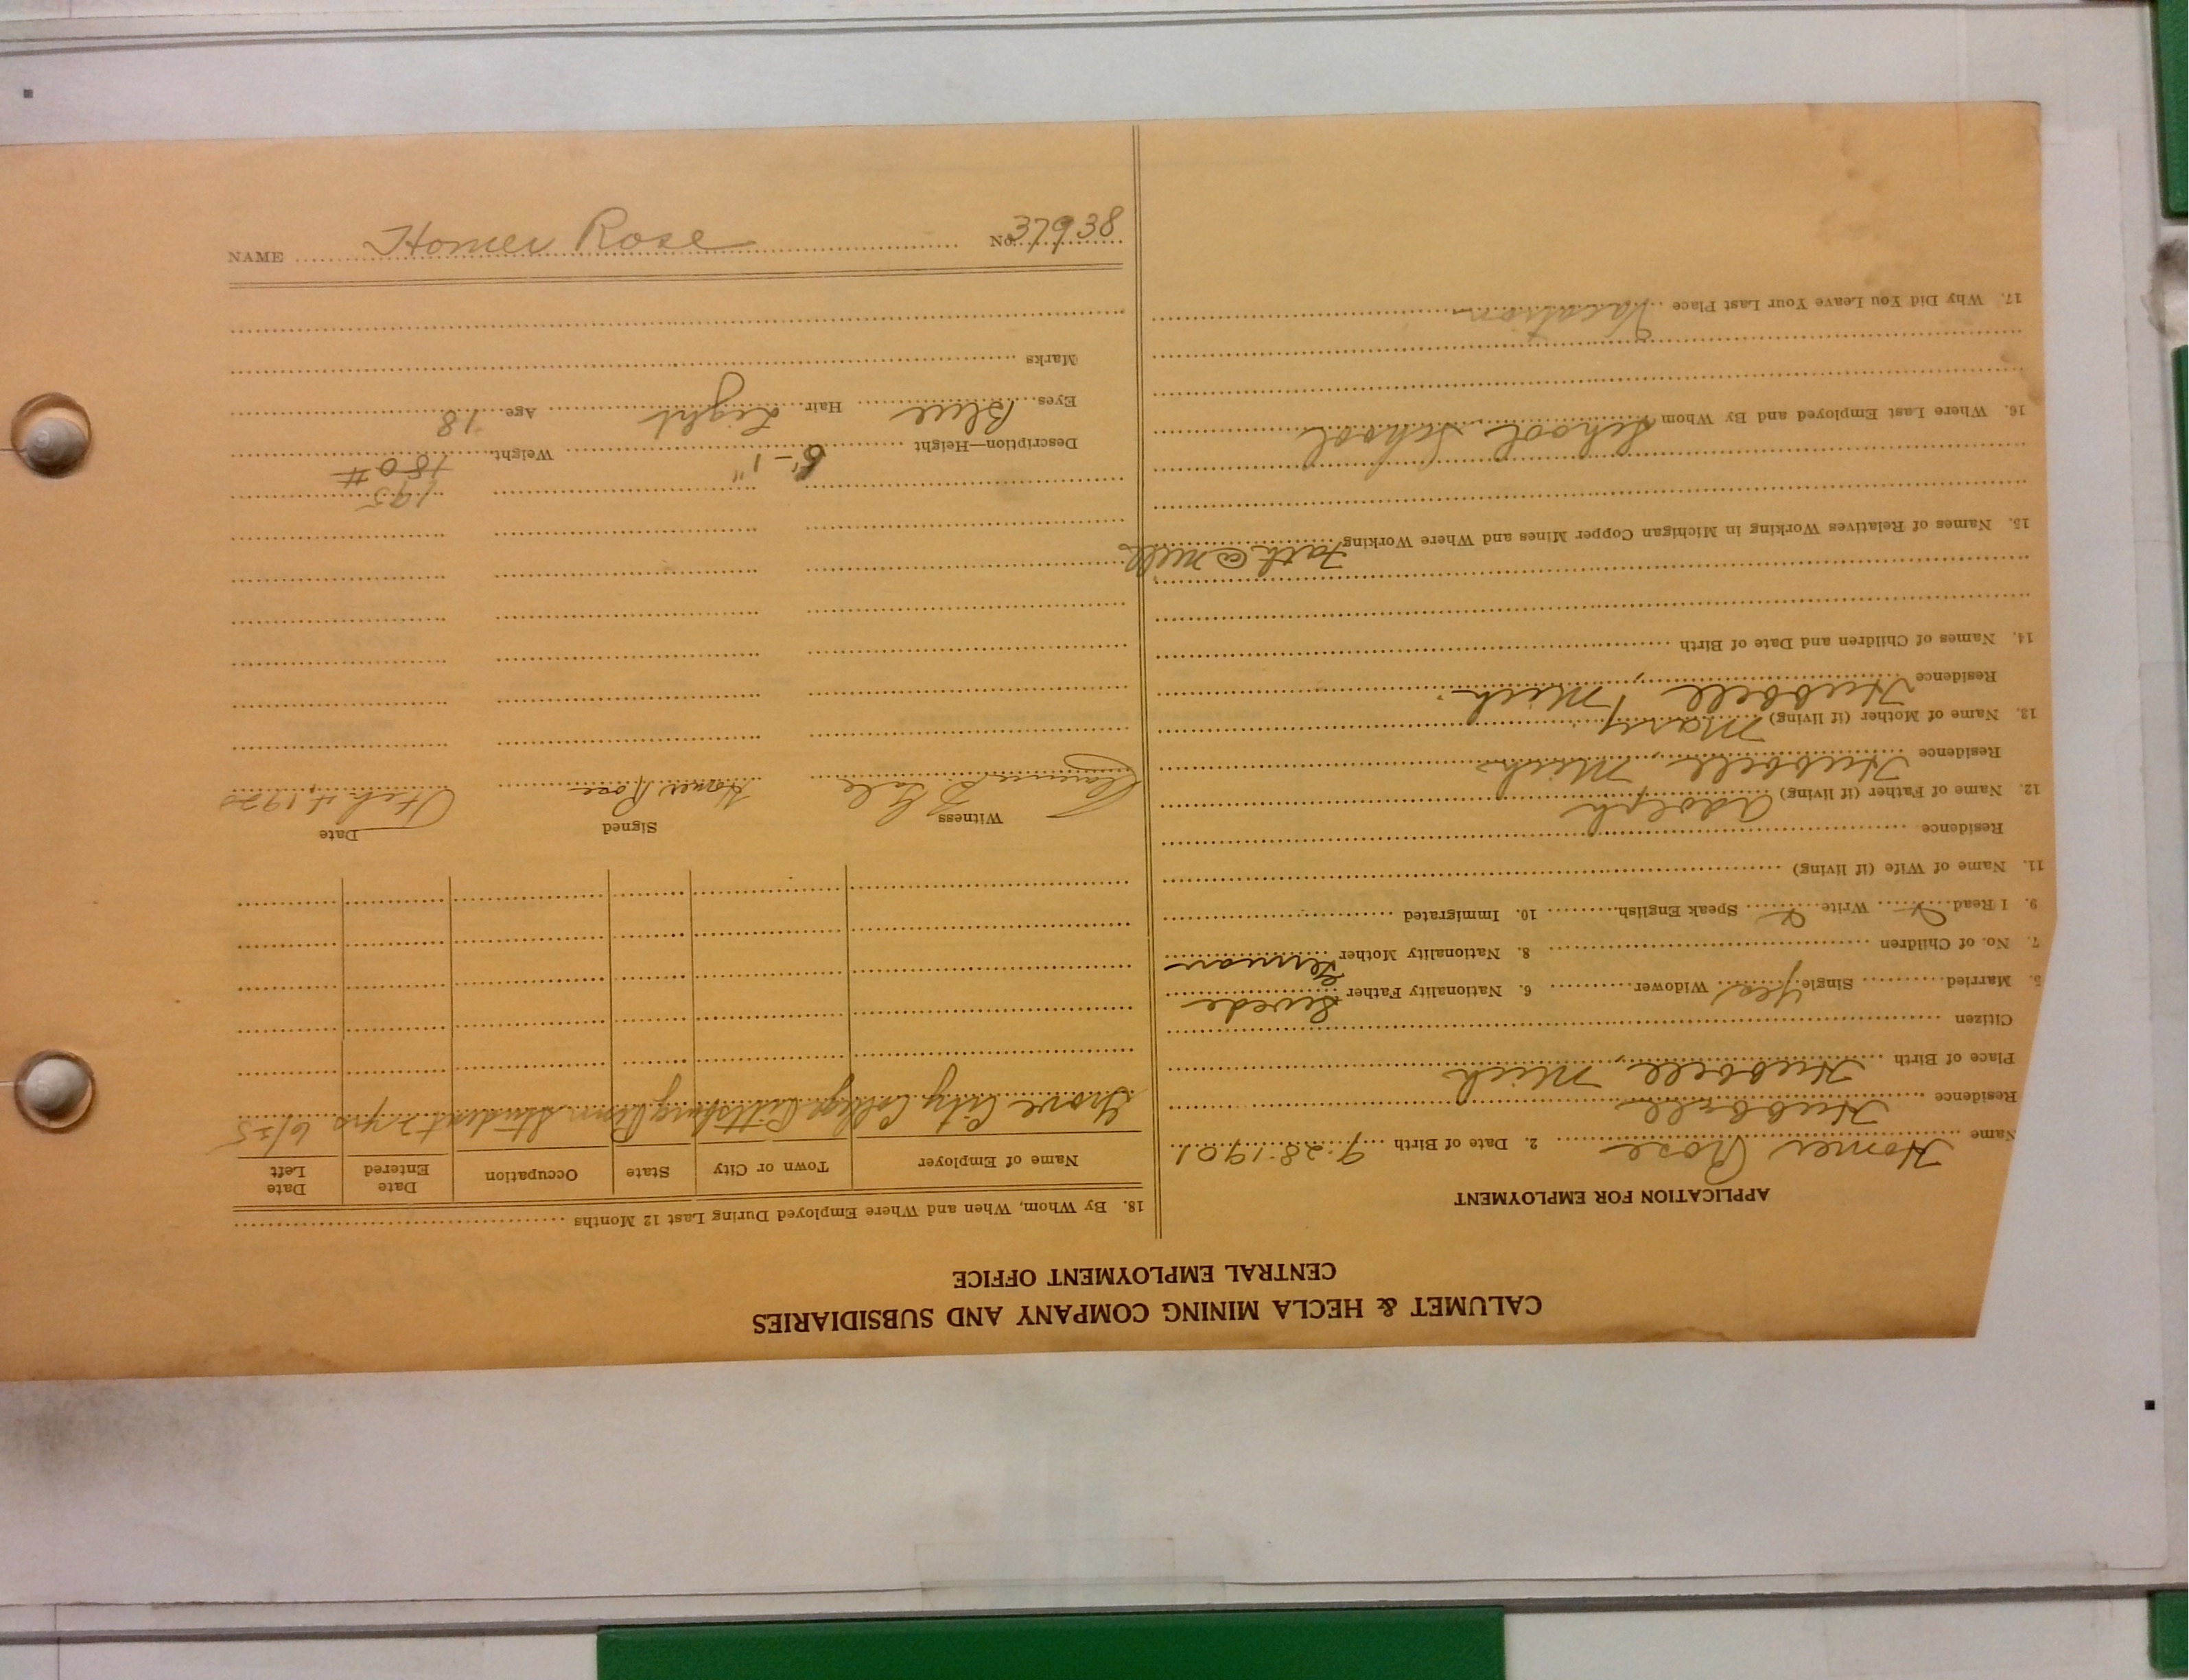 CALUMET & HECLA MINING COMPANY AND SUBSIDIARIES
CENTRAL EMPLOYMENT OFFICE
APPLICATION FOR EMPLOYMENT
Name Homer Rose 2. Date of Birth 9.28.1901
Residence Hubbell
Place of Birth Hubbell, Mich
Citizen
5. Married Single yes Widower 6. Nationality Father Swede
7. No. of Children 8. Nationality Mother German
9. I Read Write Speak English 10. Immigrated
11. Name of Wife (if living)
Residence
12. Name of Father (if living) Adolph
Residence Hubbell, Mich
13. Name of Mother (if living) Mary
Residence Hubbell, Mich.
14. Names of Children and Date of Birth
15. Names of Relatives Working in Michigan Copper Mines and Where Working Fath @ mill
16. Where Last Employed and By Whom School School
17. Why Did You Leave Your Last Place Vacation
18. By Whom, When and Where Employed During Last 12 Months
Name of Employer Town or City State Occupation Date Entered Date Left
Grove City College Pittsburg Penn Student 2 yrs 6/25
Witness Signed Date
Clarence Homer Rose 1920
195
Description—Height 6'-1" Weight 180 #
Eyes Blue Hair Light Age 18
Marks
NAME Homer Rose No. 37938